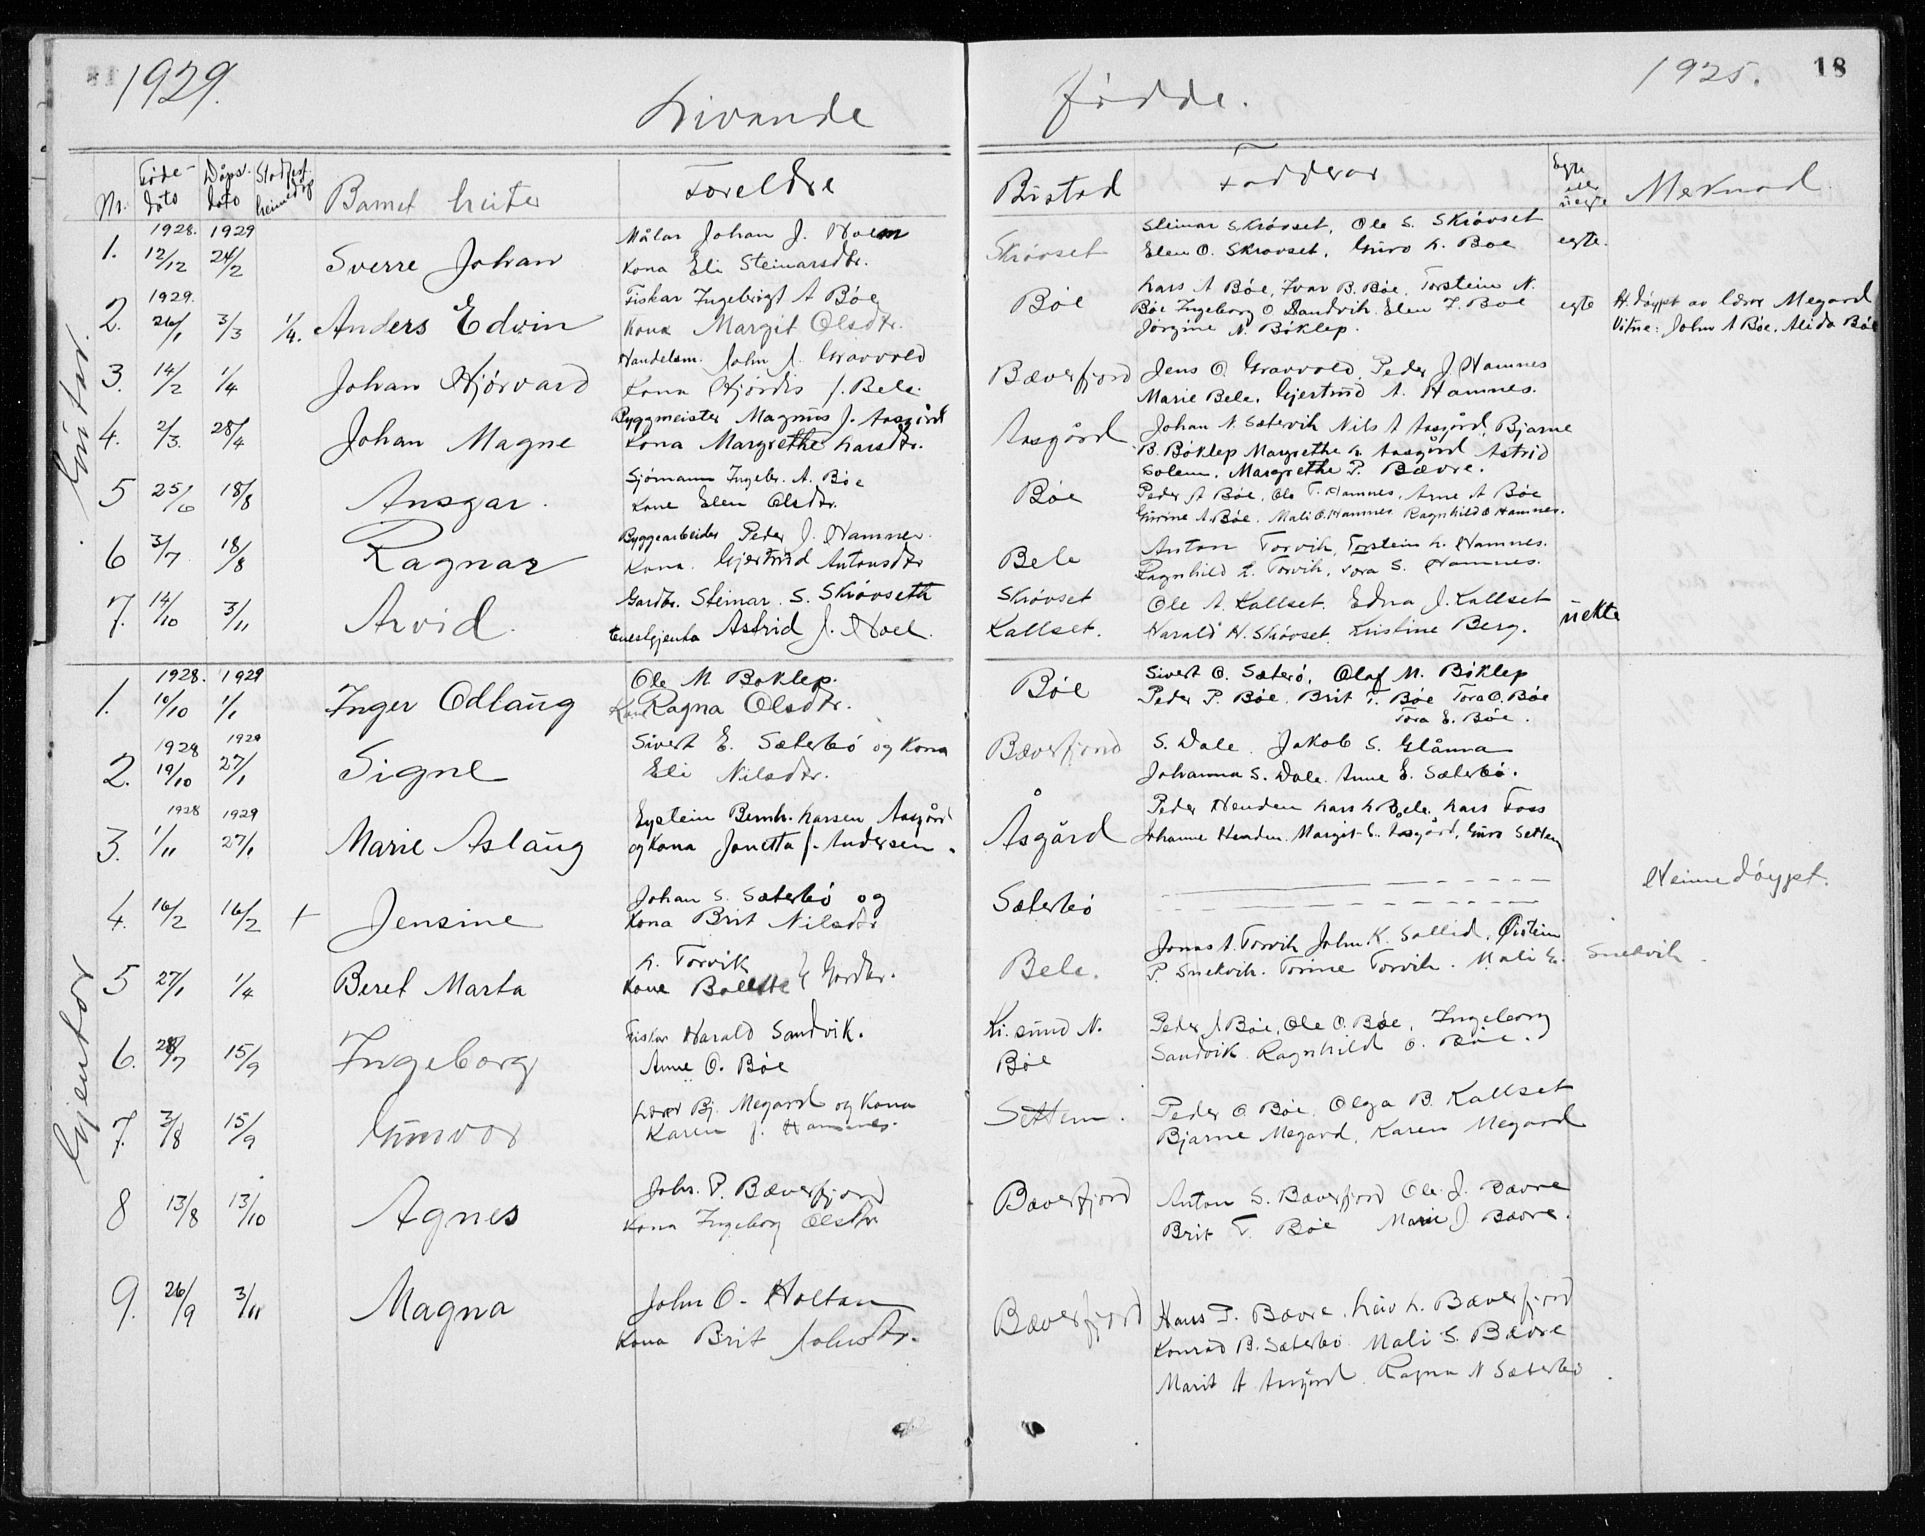 1929.
Livande fødde.
1925. 18
Nr. Føde-dato Dåps-dato Stadfest. heimedåp Barnet heiter Foreldre Bustad Fadderar Egte eller uegte Merknad
Gutar.
1. 1928. 12/12 1929 24/2 Sverre Johan
Målar Johan J. Noem
Kona Eli Steinarsdtr.
Skrøvset
Steinar Skrøvset, Ole S. Skrøvset
Elen O. Skrøvset, Guro L. Bøe
egte.
2. 1929. 26/1 3/3 1/4. Anders Edvin
Fiskar Ingebrigt A Bøe
Kona Margit Olsdtr.
Bøe
Lars A Bøe, Ivar B. Bøe, Torstein N.
Bøe Ingeborg O Sandvik. Elen I. Bøe
Jørgine N. Bøklep.
egte
H. døypt av lærar Megard
Vitne: John A Bøe, Alida Bøe
3. 14/2 1/4 Johan Hjørvard
Handelsm. John J. Gravvold
Kona Hjørdis J. Bele.
Bæverfjord
Jens O. Gravvold, Peder J. Hamnes
Marie Bele, Gjertrud A. Hamnes.
4. 2/3. 28/4 Johan Magne
Byggmeister Magnus J. Aasgård
Kona Margrethe Larsdtr.
Aasgård
Johan N. Sætervik Nils A Aasgård, Bjarne
B. Bøklep Margrethe L. Aasgård Astrid
Solem. Margrethe P. Bævre.
5 25/6 18/8 Ansgar.
Sjømann Ingebr. A. Bøe
Kone Elen Olsdtr.
Bøe
Peder A Bøe, Ole T. Hamnes, Arne A Bøe
Gurine A. Bøe. Mali O. Hamnes Ragnhild O Hamnes.
6 3/7 18/8 Ragnar
Byggearbeider Peder J. Hamnes.
Kona. Gjertrud Antonsdtr
Bele
Anton Torvik, Torstein L. Hamnes.
Ragnhild L. Torvik, Tora S. Hamnes.
7. 14/10 3/11 Arvid.
Gardbr. Steinar. S. Skrøvseth
Astrid J. Noel.
Skrøvset
Kallset.
Ole A. Kallset. Edna J. Kallset
Harald H. Skrøvset. Kristine Berg.
uekte
Gjentor
1. 1928. 10/10 1929 1/1 Inger Odlaug
Ole M Bøklep.
Kona Ragna Olsdtr.
Bøe
Sivert O. Sæterø, Olaf M. Bøklep
Peder P. Bøe. Brit T. Bøe Tora O. Bøe
Tora E. Bøe.
2. 1928 19/10 1929 27/1 Signe
Sivert E. Sæterbø og Kona
Eli Nilsdtr.
Bæverfjord
S. Dale. Jakob S. Glåmna
Johanna S. Dale. Anne E. Sæterbø.
3. 1928 1/11 1929 27/1 Marie Aslaug
Eystein Bernh. Larsen Aasgård
og Kona Jonetta J. Andersen.
Åsgård
Peder Henden Lars L Bele, Lars Foss
Johanne Henden. Margit E. Aasgård, Guro Settem
4. 16/2 16/2 + Jensine
Johan S. Sæterbø og
Kona Brit Nilsdtr
Sæterbø
Heimedøypt.
5 27/1 1/4 Beret Marta
L. Torvik
Kone Bolette E Gardbr.
Bele.
Jonas A. Torvik John K. Sollid, Øistein
P. Snekvik. Torine Torvik. Mali E. Snekvik.
6. 28/7 15/9 Ingeborg
Fiskar Harald Sandvik.
Anne O. Bøe
Kr.sund N.
Bøe
Peder J Bøe, Ole O. Bøe, Ingeborg
Sandvik Ragnhild O. Bøe.
7. 3/8 15/9 Gunvor
Lærar Bj. Megard og Kona
Karen J. Hamnes.
Settem.
Peder O Bøe, Olga B. Kallset
Bjarne Megard, Karen Megard
8 13/8 13/10 Agnes
Joh. P. Bæverfjord
Kona Ingeborg Olsdtr
Bæverfjord
Anton S. Bæverfjord Ole J. Bævre
Brit T. Bøe Marie J. Bævre.
9. 26/9 3/11 Magna
John O. Holtan
Kona Brit Johnsdtr.
Bæverfjord
Hans P. Bævre. Leiv L. Bæverfjord
Konrad B. Sæterbø Mali S. Bævre
Marit A Aasgård. Ragna N Sæterbø.